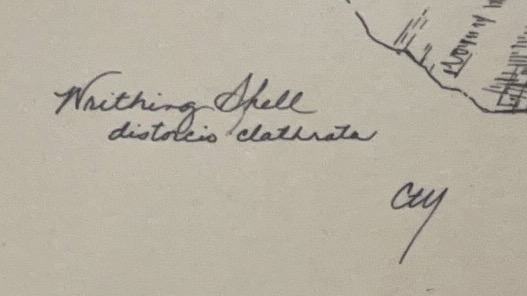 Writhing Shell
distorcio clathrata